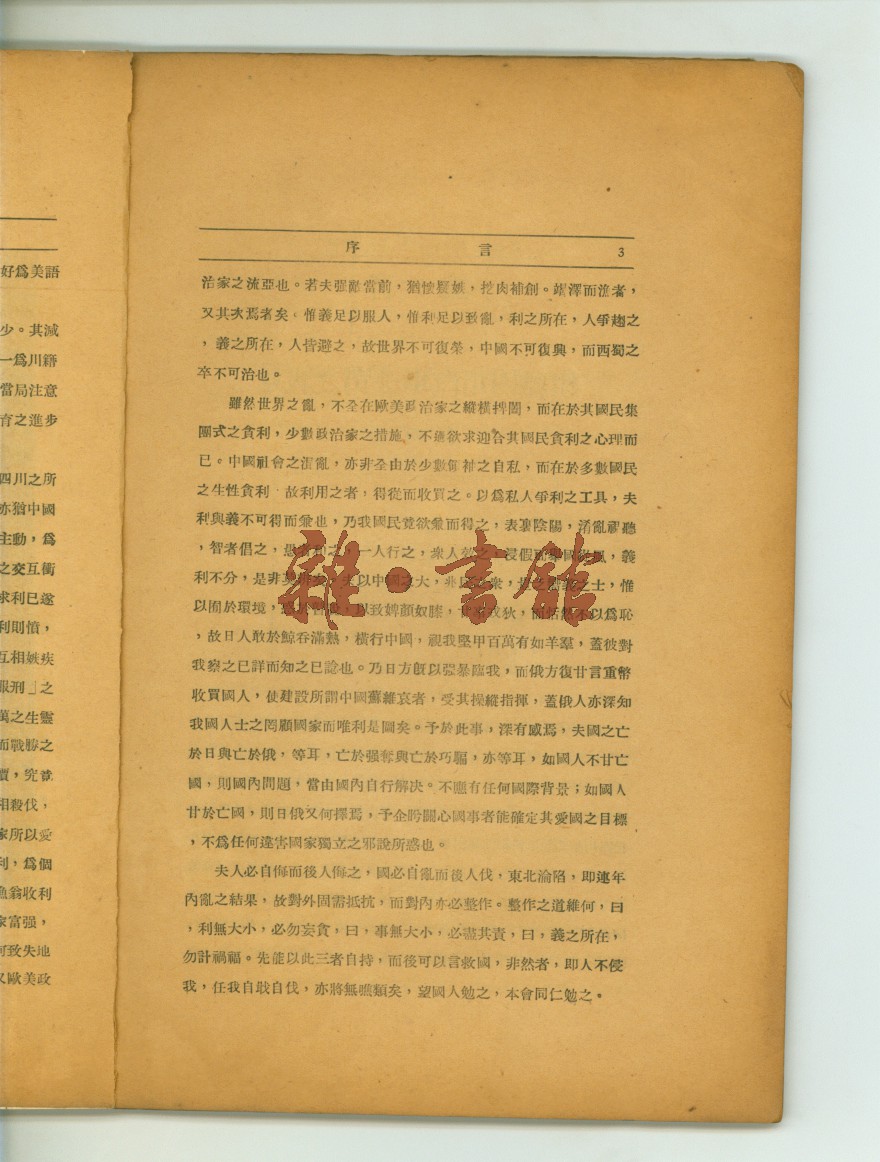 序言 3
治家之流亞也。若夫强敵當前,猶懷疑嫉,挖肉補創。竭澤而漁者,
又其次焉者矣。惟義足以服人,惟利足以致亂,利之所在,人爭趨之
,義之所在,人皆避之,故世界不可復榮,中國不可復興,而西蜀之
卒不可治也。
雖然世界之亂,不全在歐美政治家之縱橫捭闔,而在於其國民集
團式之貪利,少數政治家之措施,不過欲求迎合其國民貪利之心理而
已。中國社會之混亂,亦非全由於少數領袖之自私,而在於多數國民
之生性貪利 故利用之者,得從而收買之。以為私人爭利之工具,夫
利與義不可得而兼也,乃我國民竟欲兼而得之,表裏陰陽,淆亂視聽
,智者倡之,愚者和之,一人行之,衆人效之,浸假而舉國從風,義
利不分,是非莫辨,以中國之大,非之衆,之士,惟
以囿於環境,以致婢顏奴膝,而恬然不以爲恥
,故日人敢於鯨吞滿熱,橫行中國,視我堅甲百萬有如羊羣,蓋彼對
我察之已詳而知之已諗也。乃日方旣以强暴臨我,而俄方復甘言重幣
收買國人,使建設所謂中國蘇維哀者,受其操縱指揮,蓋俄人亦深知
我國人士之罔顧國家而唯利是圖矣。予於此事,深有慼焉,夫國之亡
於日與亡於俄,等耳,亡於强奪與亡於巧騙,亦等耳,如國人不甘亡
國,則國內問題,當由國內自行解决。不應有任何國際背景;如國人
甘於亡國,則日俄又何擇焉,予企盼關心國事者能確定其愛國之目標
,不爲任何違害國家獨立之邪說所惑也。
夫人必自侮而後人侮之,國必自亂而後人伐,東北淪陷,即連年
內亂之結果,故對外固需抵抗,而對內亦必整作。整作之道維何,曰
,利無大小,必勿妄貪,曰,事無大小,必盡其責,曰,義之所在,
勿計禍福。先能以此三者自持,而後可以言救國,非然者,即人不侵
我,任我自戕自伐,亦將無噍類矣,望國人勉之,本會同仁勉之。
雜·書館
好爲美語
少。其減
一爲川籍
當局注意
育之進步
四川之所
亦猶中國
主動,爲
之交互衝
求利已遂
利則憤,
互相嫉疾
服刑」之
萬之生靈
而戰勝之
相殺伐,
家所以愛
利,爲個
漁翁收利
家富强,
何致失地
又歐美政